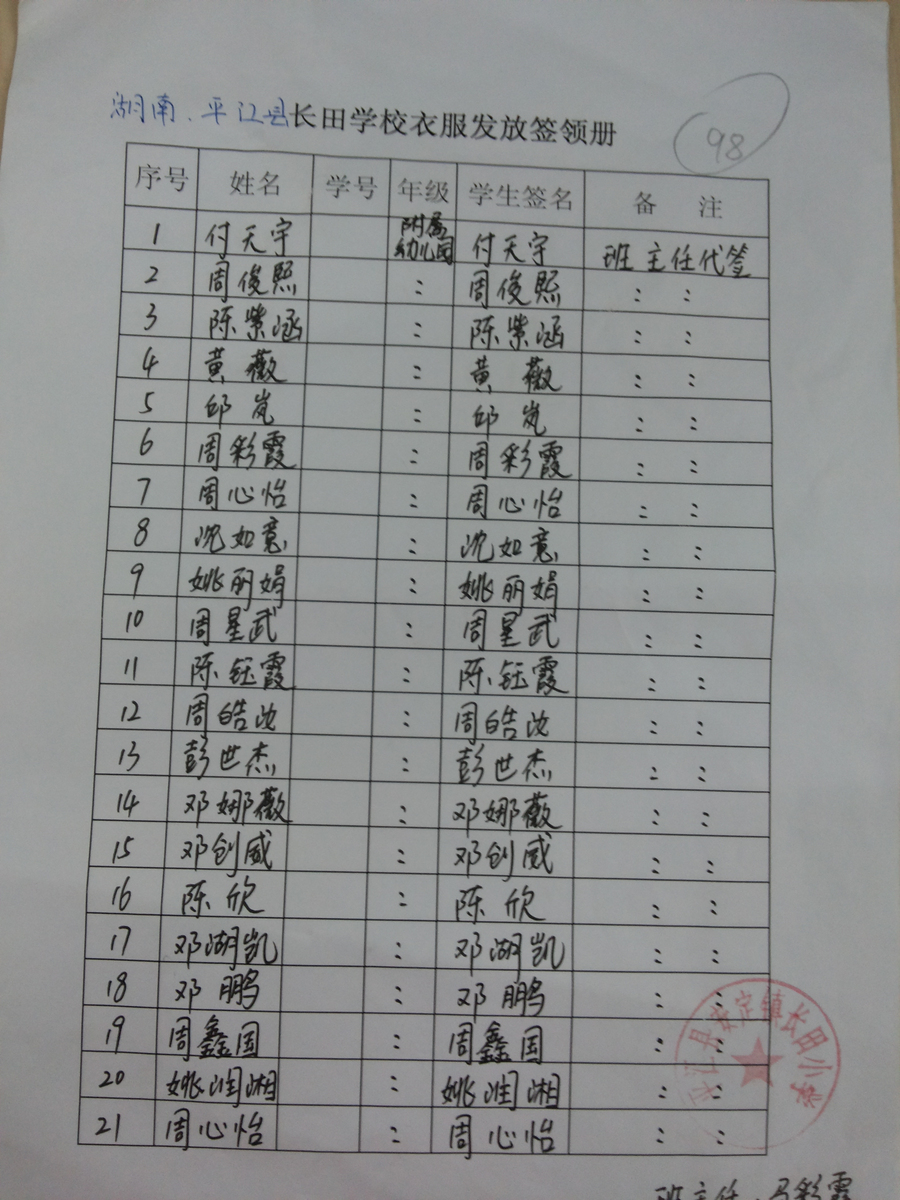 湖南、平江县长田学校衣服发放签领册
98
序号 姓名 学号 年级 学生签名 备 注
1 付天宇 附属幼儿园 付天宇 班主任代签
2 周俊熙 : 周俊熙 : :
3 陈紫涵 : 陈紫涵 : :
4 黄薇 : 黄薇 : :
5 邱岚 : 邱岚 : :
6 周彩霞 : 周彩霞 : :
7 周心怡 : 周心怡 : :
8 沈如意 : 沈如意 : :
9 姚丽娟 : 姚丽娟 : :
10 周星武 : 周星武 : :
11 陈钰霞 : 陈钰霞 : :
12 周皓汝 : 周皓汝 : :
13 彭世杰 : 彭世杰 : :
14 邓娜薇 : 邓娜薇 : :
15 邓创威 : 邓创威 : :
16 陈欣 : 陈欣 : :
17 邓湖凯 : 邓湖凯 : :
18 邓鹏 : 邓鹏 : :
19 周鑫国 : 周鑫国 : :
20 姚润湘 : 姚润湘 : :
21 周心怡 : 周心怡 : :
平江县安定镇长田小学
班主任